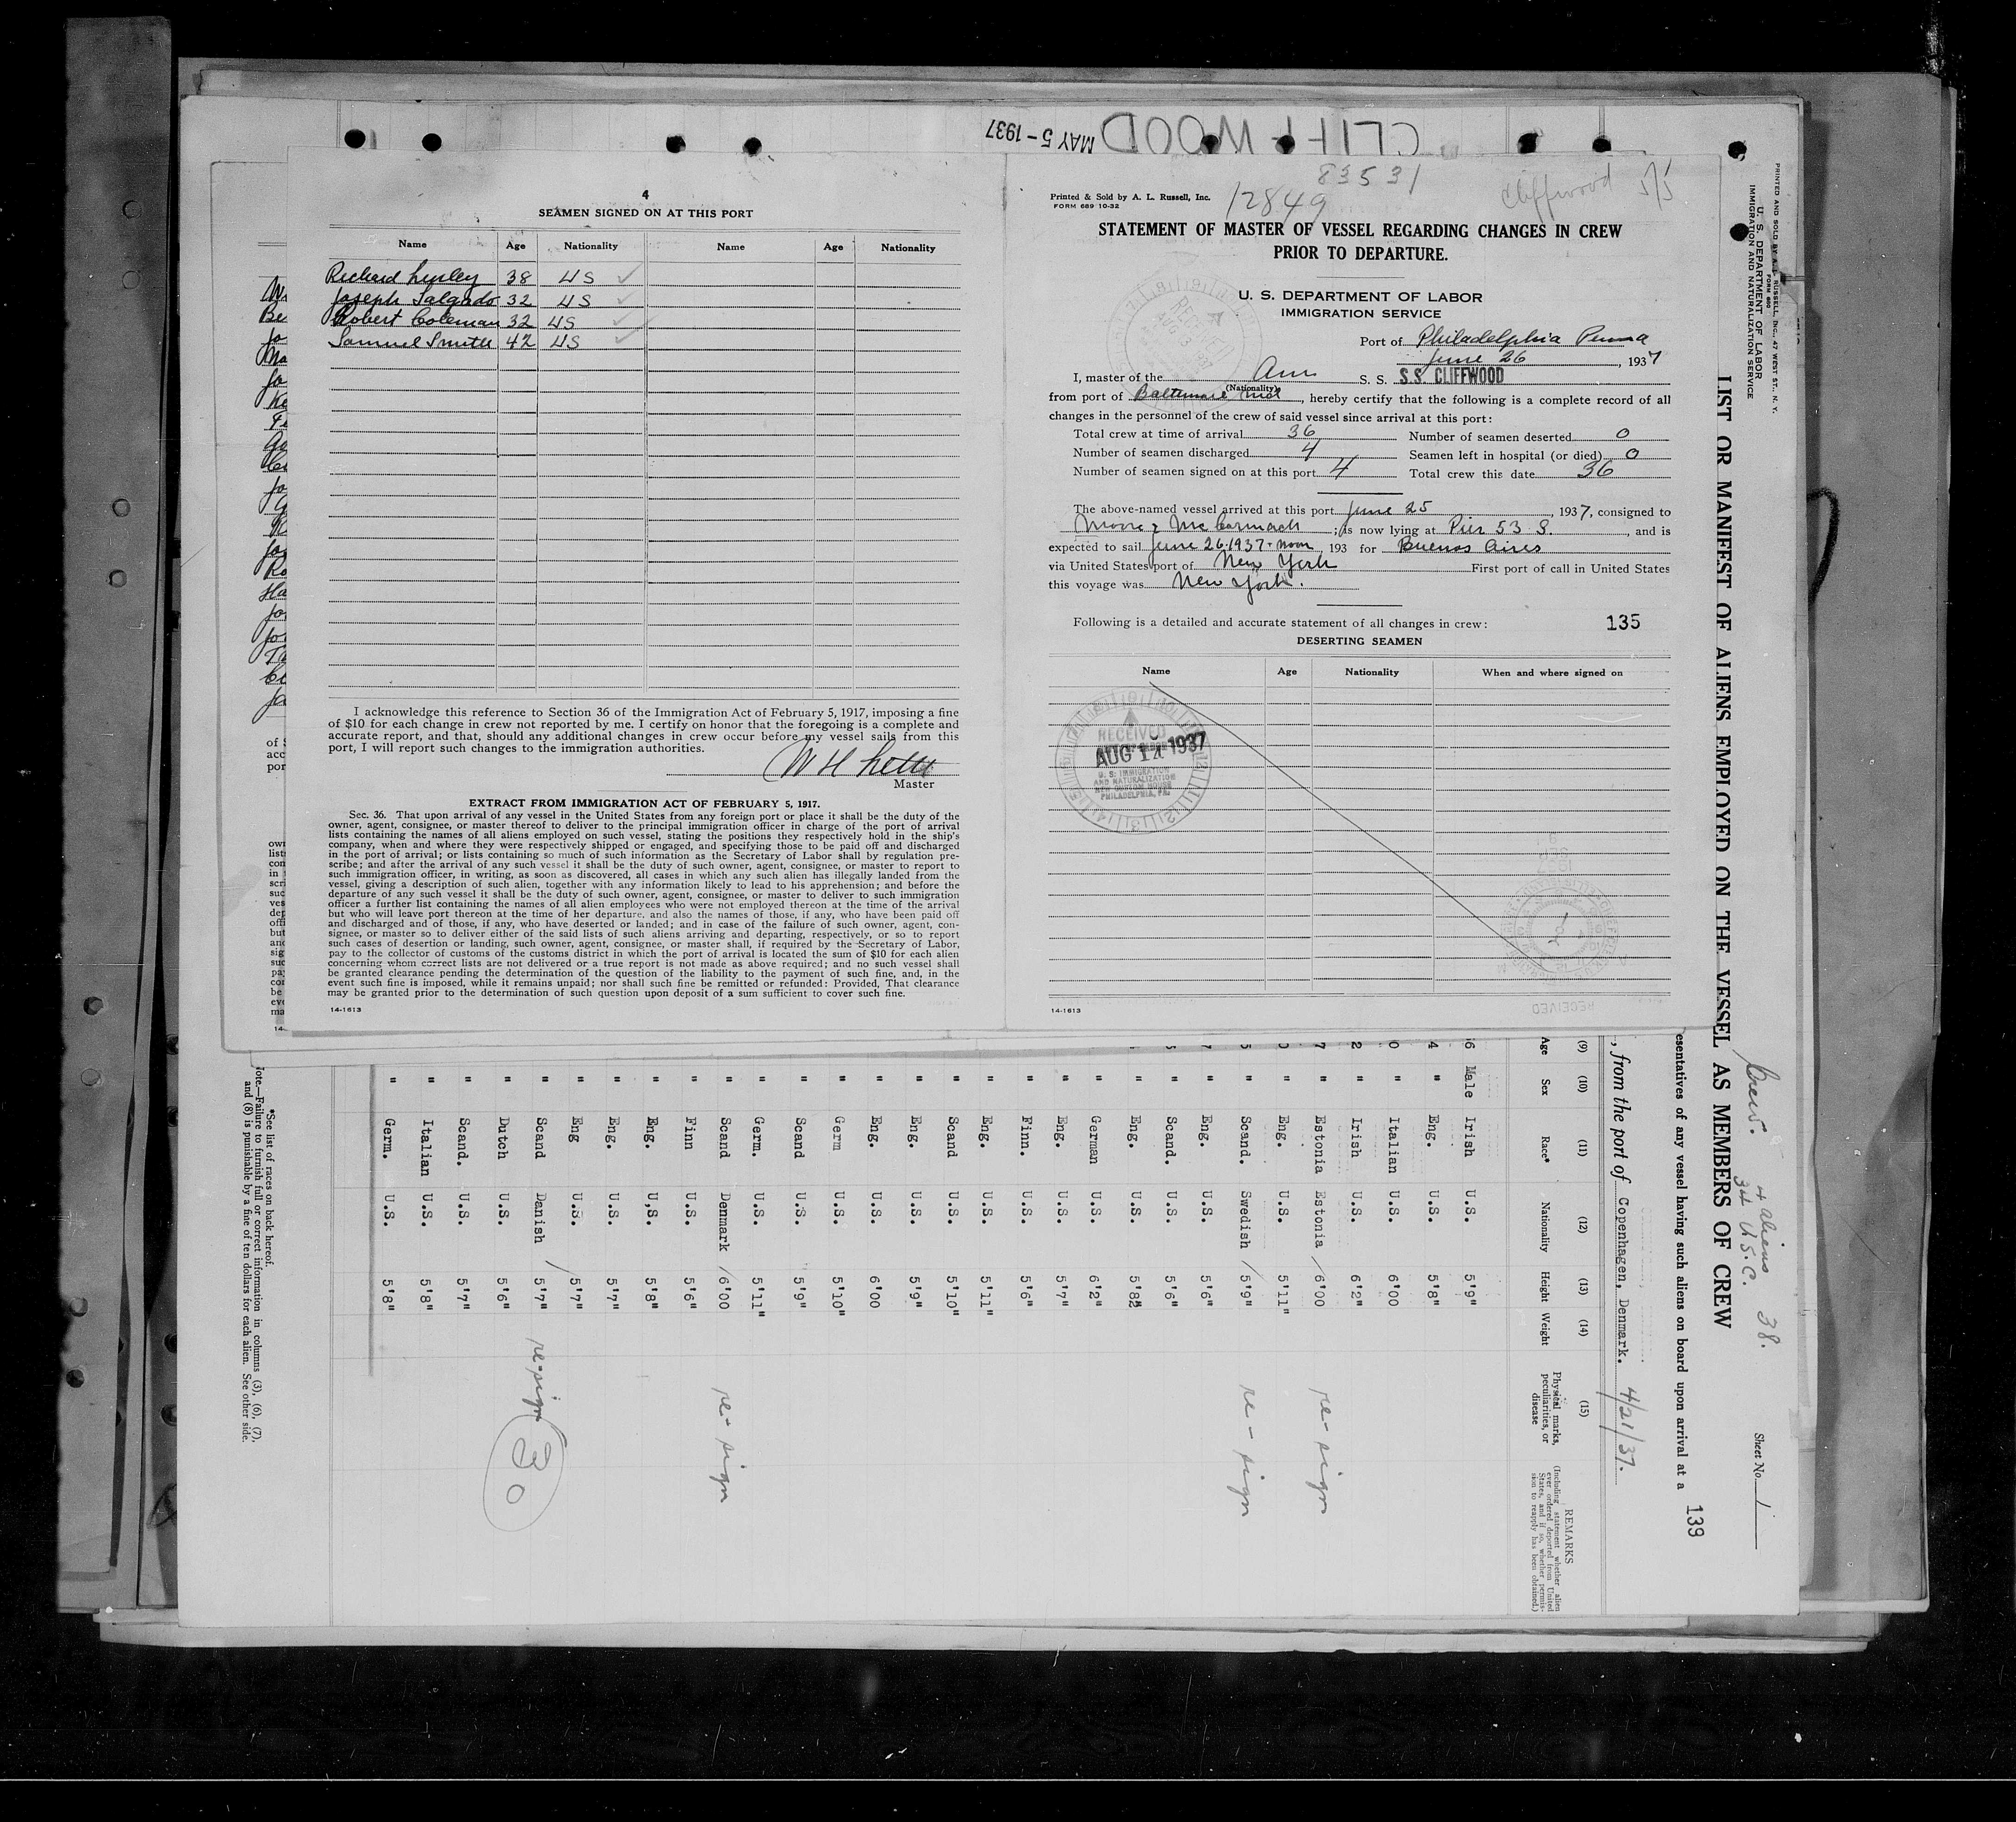 CLIFFWOOD MAY 5-1937
4
SEAMEN SIGNED ON AT THIS PORT
Name Age Nationality Name Age Nationality
Richard 38 US
Joseph Salgado 32 US
Robert Coleman 32 US
Samuel Smith 42 US
I acknowledge this reference to Section 36 of the Immigration Act of February 5, 1917, imposing a fine
of $10 for each change in crew not reported by me. I certify on honor that the foregoing is a complete and
accurate report, and that, should any additional changes in crew occur before my vessel sails from this
port, I will report such changes to the immigration authorities.
W H
Master
EXTRACT FROM IMMIGRATION ACT OF FEBRUARY 5, 1917.
Sec. 36. That upon arrival of any vessel in the United States from any foreign port or place it shall be the duty of the
owner, agent, consignee, or master thereof to deliver to the principal immigration officer in charge of the port of arrival
lists containing the names of all aliens employed on such vessel, stating the positions they respectively hold in the ship's
company, when and where they were respectively shipped or engaged, and specifying those to be paid off and discharged
in the port of arrival; or lists containing so much of such information as the Secretary of Labor shall by regulation pre-
scribe; and after the arrival of any such vessel it shall be the duty of such owner, agent, consignee, or master to report to
such immigration officer, in writing, as soon as discovered, all cases in which any such alien has illegally landed from the
vessel, giving a description of such alien, together with any information likely to lead to his apprehension; and before the
departure of any such vessel it shall be the duty of such owner, agent, consignee, or master to deliver to such immigration
officer a further list containing the names of all alien employees who were not employed thereon at the time of the arrival
but who will leave port thereon at the time of her departure, and also the names of those, if any, who have been paid off
and discharged and of those, if any, who have deserted or landed; and in case of the failure of such owner, agent, con-
signee, or master so to deliver either of the said lists of such aliens arriving and departing, respectively, or so to report
such cases of desertion or landing, such owner, agent, consignee, or master shall, if required by the Secretary of Labor,
pay to the collector of customs of the customs district in which the port of arrival is located the sum of $10 for each alien
concerning whom correct lists are not delivered or a true report is not made as above required; and no such vessel shall
be granted clearance pending the determination of the question of the liability to the payment of such fine, and, in the
event such fine is imposed, while it remains unpaid; nor shall such fine be remitted or refunded: Provided, That clearance
may be granted prior to the determination of such question upon deposit of a sum sufficient to cover such fine.
14-1613
83531
Cliffwood 5/5
Printed & Sold by A. L. Russell, Inc.
FORM 689 10-32
12849
STATEMENT OF MASTER OF VESSEL REGARDING CHANGES IN CREW
PRIOR TO DEPARTURE.
U. S. DEPARTMENT OF LABOR
IMMIGRATION SERVICE
Port of Philadelphia Penna
June 26, 1937
I, master of the Am S. S. S.S. CLIFFWOOD
(Nationality)
from port of Baltimore Md, hereby certify that the following is a complete record of all
changes in the personnel of the crew of said vessel since arrival at this port:
Total crew at time of arrival 36 Number of seamen deserted 0
Number of seamen discharged 4 Seamen left in hospital (or died) 0
Number of seamen signed on at this port 4 Total crew this date 36
The above-named vessel arrived at this port June 25, 1937, consigned to
Moore & McCormack; is now lying at Pier 53 S., and is
expected to sail June 26-1937- noon, 193 for Buenos Aires
via United States port of New York First port of call in United States
this voyage was New York.
Following is a detailed and accurate statement of all changes in crew: 135
DESERTING SEAMEN
Name Age Nationality When and where signed on
RECEIVED
AUG 14 1937
U. S. IMMIGRATION
AND NATURALIZATION
NEW CUSTOM HOUSE
PHILADELPHIA, PA.
14-1613
RECEIVED
PRINTED AND SOLD BY A. L. RUSSELL, INC., 47 WEST ST., N. Y.
FORM 689
U. S. DEPARTMENT OF LABOR
IMMIGRATION AND NATURALIZATION SERVICE
Crew. 4 aliens 38.
34 U.S.C.
Sheet No. 1
LIST OR MANIFEST OF ALIENS EMPLOYED ON THE VESSEL AS MEMBERS OF CREW
139
esentatives of any vessel having such aliens on board upon arrival at a
, from the port of Copenhagen, Denmark. 4/21/37.
(9) (10) (11) (12) (13) (14) (15)
Age Sex Race* Nationality Height Weight Physical marks, peculiarities, or disease
REMARKS
(Including statement whether alien
ever ordered deported from United
States, and if so, whether permis-
sion to reapply has been obtained.)
6 Male Irish U.S. 5'9"
4 " Eng. U.S. 5'8"
0 " Italian U.S. 6'00
2 " Irish U.S. 6'2"
7 " Estonia Estonia / 6'00 re-sign
0 " Eng. U.S. 5'11"
5 " Scand. Swedish / 5'9" re-sign
" Eng. U.S. 5'6"
" Scand. U.S. 5'6"
" Eng. U.S. 5'8"
" German U.S. 6'2"
" Eng. U.S. 5'7"
" Finn. U.S. 5'6"
" Eng. U.S. 5'11"
" Scand U.S. 5'10"
" Eng. U.S. 5'9"
" Eng. U.S. 6'00
" Germ U.S. 5'10"
" Scand U.S. 5'9"
" Germ. U.S. 5'11"
" Scand Denmark / 6'00 re-sign
" Finn U.S. 5'6"
" Eng. U,S. 5'8"
" Eng. U.S. 5'7"
" Eng U.S. 5'7"
" Scand Danish / 5'7" re-sign
" Dutch U.S. 5'6" 30
" Scand. U.S. 5'7"
" Italian U.S. 5'8"
" Germ. U.S. 5'8"
*See list of races on back hereof.
ote.—Failure to furnish full or correct information in columns (3), (6), (7),
and (8) is punishable by a fine of ten dollars for each alien. See other side.